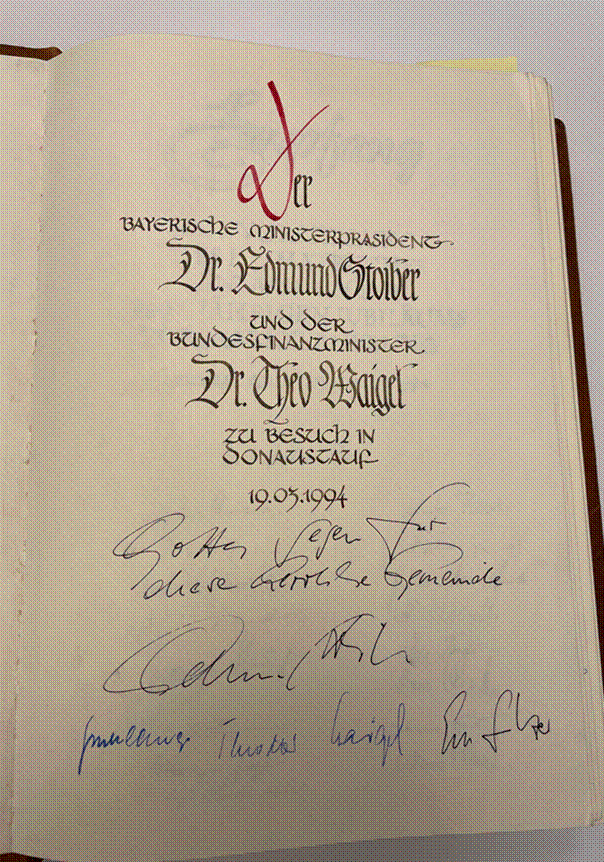 Der
BAYERISCHE MINISTERPRÄSIDENT
Dr. Edmund Stoiber
UND DER
BUNDESFINANZMINISTER
Dr. Theo Waigel
ZU BESUCH IN
DONAUSTAUF
19.05.1994
Gottes Segen für
diese herrliche Gemeinde
Edmund Stoiber
Theo Waigel